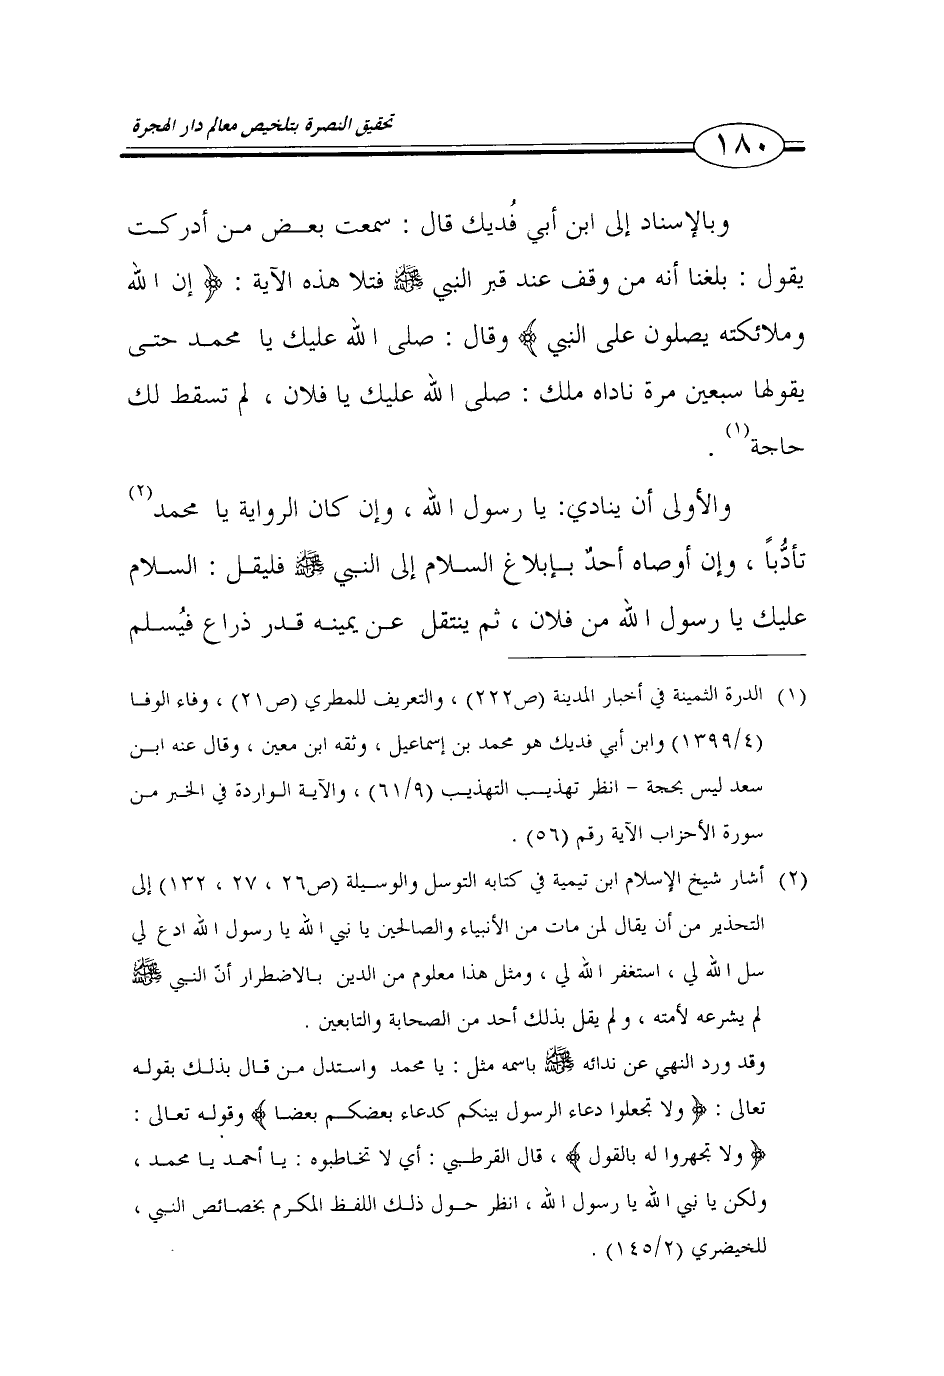 تحقيق النصرة بتلخيص معالم دار الهجرة
١٨٠
وبالإسناد إلى ابن أبي فُديك قال : سمعت بعض من أدركت
يقول : بلغنا أنه من وقف عند قبر النبي ﷺ فتلا هذه الآية : ﴿ إن الله
وملائكته يصلون على النبي ﴾ وقال : صلى الله عليك يا محمد حتى
يقولها سبعين مرة ناداه ملك : صلى الله عليك يا فلان ، لم تسقط لك
حاجة(١) .
والأولى أن ينادي: يا رسول الله ، وإن كان الرواية يا محمد(٢)
تأدُّباً ، وإن أوصاه أحدٌ بإبلاغ السلام إلى النبي ﷺ فليقل : السلام
عليك يا رسول الله من فلان ، ثم ينتقل عن يمينه قدر ذراع فيُسلم
(١) الدرة الثمينة في أخبار المدينة (ص٢٢٢) ، والتعريف للمطري (ص٢١) ، وفاء الوفا
(١٣٩٩/٤) وابن أبي فديك هو محمد بن إسماعيل ، وثقه ابن معين ، وقال عنه ابن
سعد ليس بحجة - انظر تهذيب التهذيب (٦١/٩) ، والآية الواردة في الخبر من
سورة الأحزاب الآية رقم (٥٦) .
(٢) أشار شيخ الإسلام ابن تيمية في كتابه التوسل والوسيلة (ص٢٦ ، ٢٧ ، ١٣٢) إلى
التحذير من أن يقال لمن مات من الأنبياء والصالحين يا نبي الله يا رسول الله ادع لي
سل الله لي ، استغفر الله لي ، ومثل هذا معلوم من الدين بالاضطرار أنّ النبي ﷺ
لم يشرعه لأمته ، ولم يقل بذلك أحد من الصحابة والتابعين .
وقد ورد النهي عن ندائه ﷺ باسمه مثل : يا محمد واستدل من قال بذلك بقوله
تعالى : ﴿ ولا تجعلوا دعاء الرسول بينكم كدعاء بعضكم بعضا ﴾ وقوله تعالى :
﴿ ولا تجهروا له بالقول ﴾ ، قال القرطبي : أي لا تخاطبوه : يا أحمد يا محمد ،
ولكن يا نبي الله يا رسول الله ، انظر حول ذلك اللفظ المكرم بخصائص النبي ،
للخيضري (١٤٥/٢) .